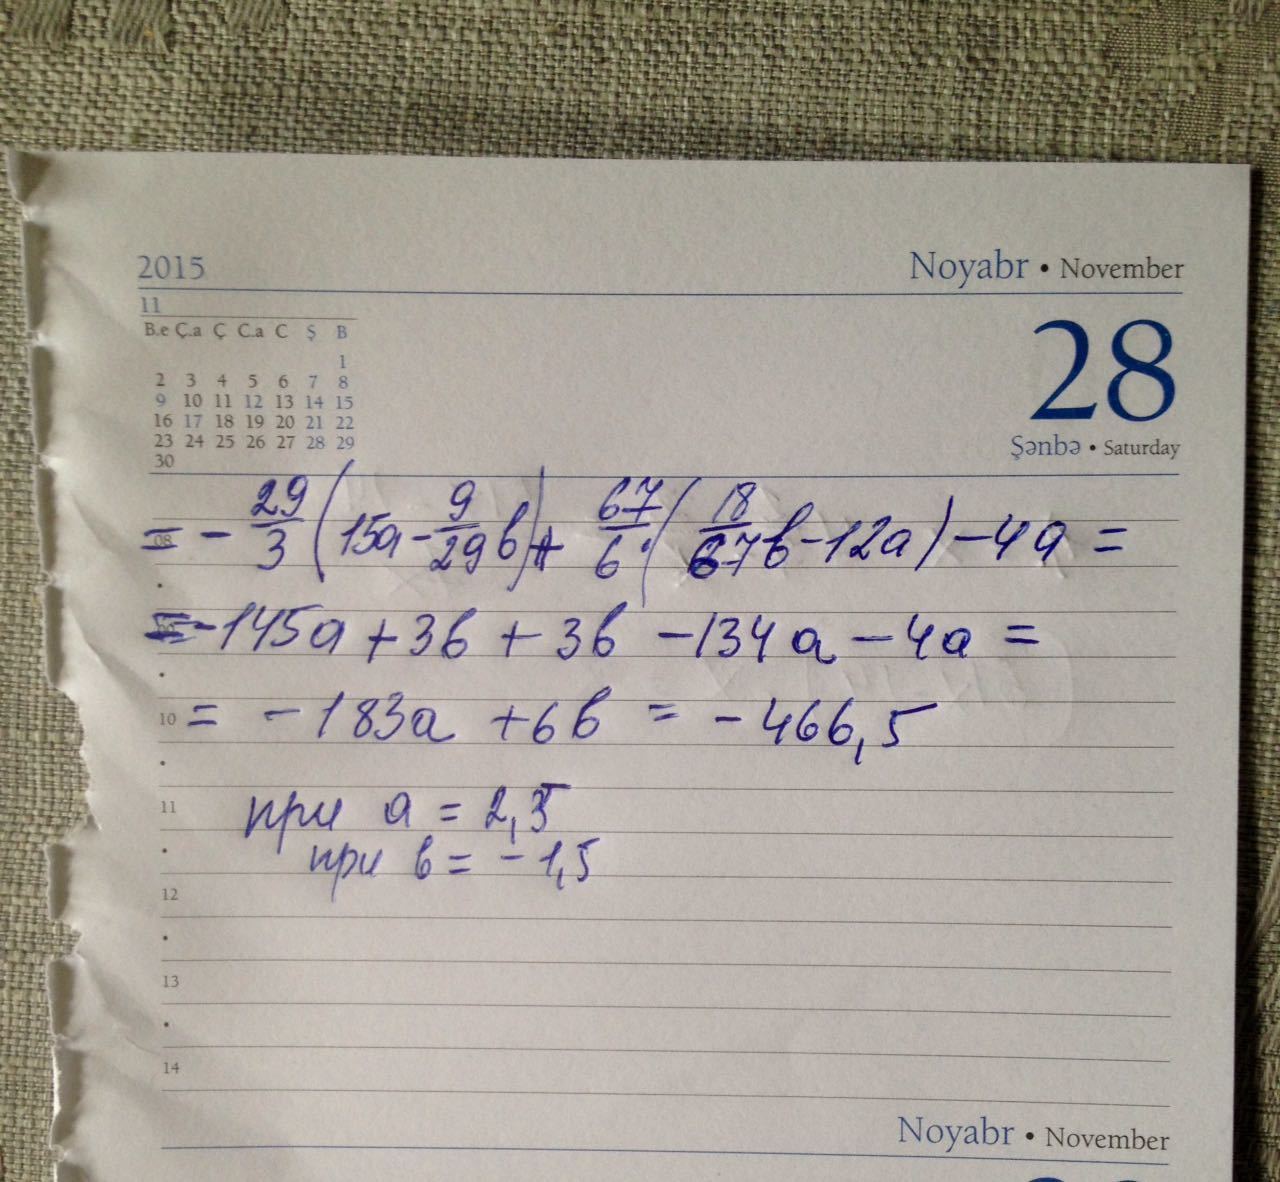 2015
Noyabr • November
11
B.e Ç.a Ç C.a C Ş B
1
2 3 4 5 6 7 8
9 10 11 12 13 14 15
16 17 18 19 20 21 22
23 24 25 26 27 28 29
30
28
Şənbə • Saturday
08
= - 29/3 (15a - 9/29 b) + 67/6 · (18/67 b - 12a) - 4a =
= -145a + 3b + 3b - 134a - 4a =
10 = - 183a + 6b = - 466,5
11
при a = 2,5
при b = - 1,5
12
13
14
Noyabr • November